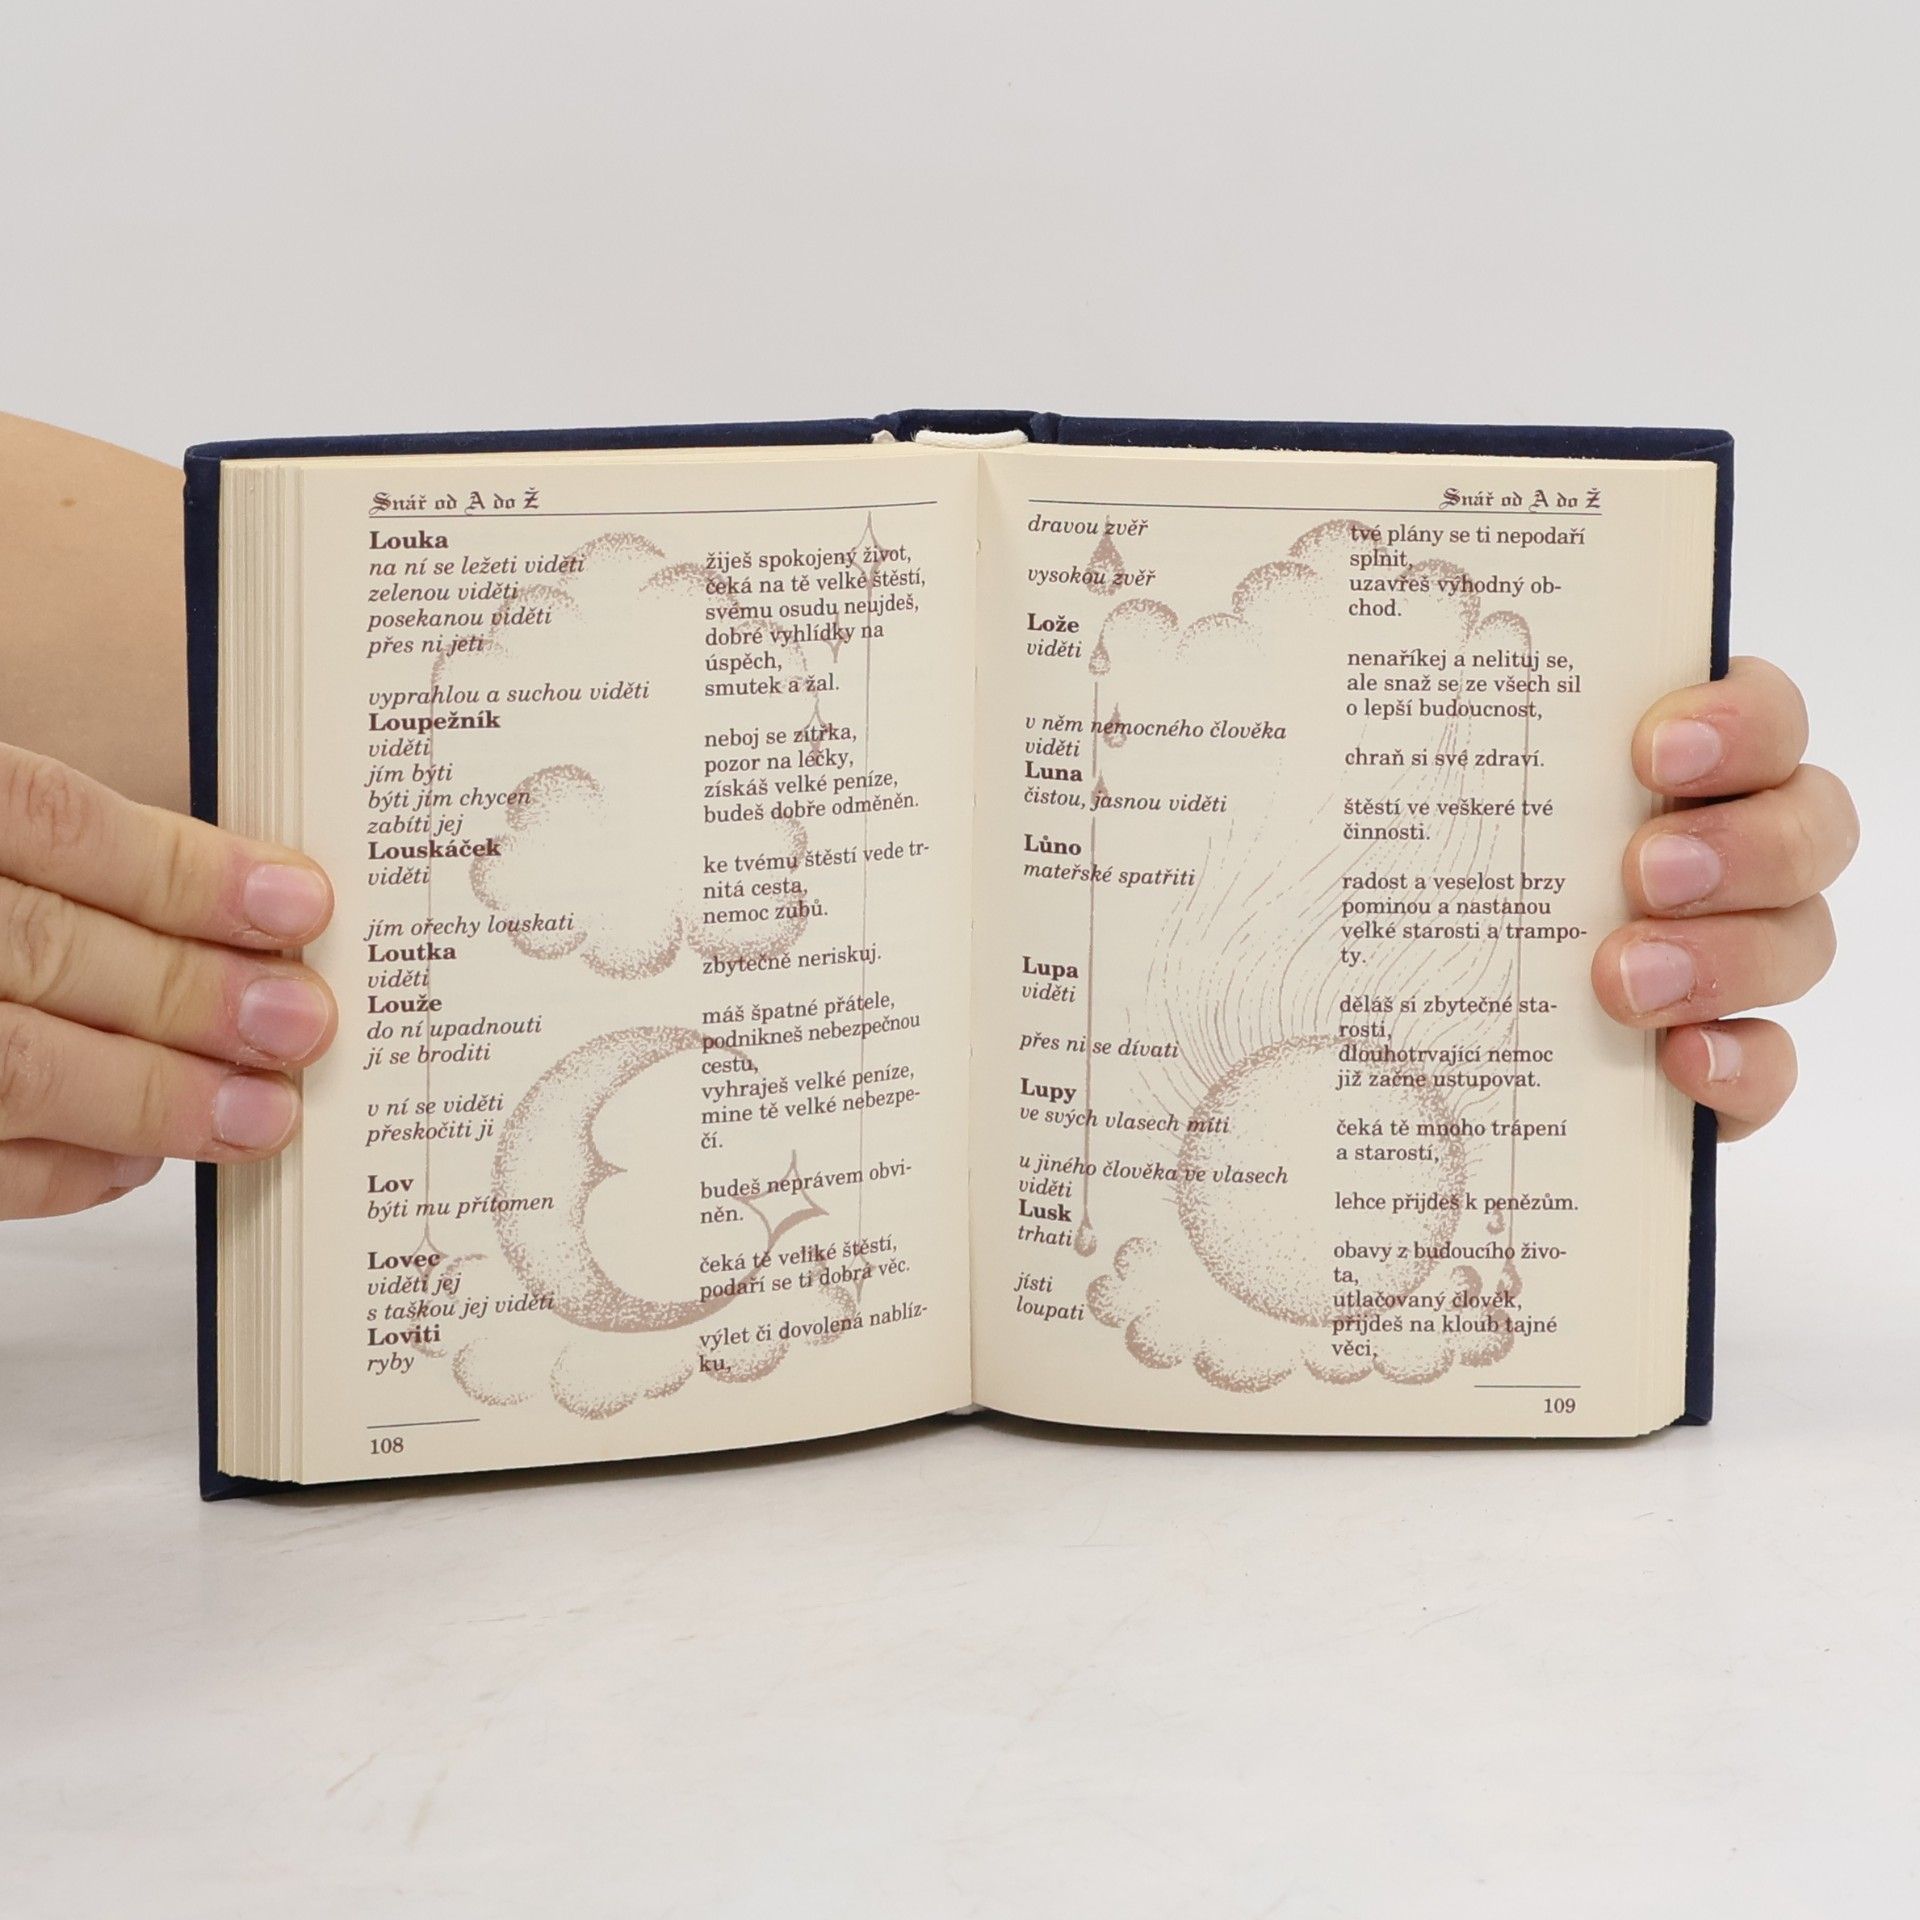 Snář od A do Ž
Louka
na ní se ležeti viděti žiješ spokojený život,
zelenou viděti čeká na tě velké štěstí,
posekanou viděti svému osudu neujdeš,
přes ni jeti dobré vyhlídky na
úspěch,
vyprahlou a suchou viděti smutek a žal.
Loupežník
viděti neboj se zítřka,
jím býti pozor na léčky,
býti jím chycen získáš velké peníze,
zabíti jej budeš dobře odměněn.
Louskáček
viděti ke tvému štěstí vede tr-
nitá cesta,
jím ořechy louskati nemoc zubů.
Loutka
viděti zbytečně neriskuj.
Louže
do ní upadnouti máš špatné přátele,
jí se broditi podnikneš nebezpečnou
cestu,
v ní se viděti vyhraješ velké peníze,
přeskočiti ji mine tě velké nebezpe-
čí.
Lov
býti mu přítomen budeš neprávem obvi-
něn.
Lovec
viděti jej čeká tě veliké štěstí,
s taškou jej viděti podaří se ti dobrá věc.
Loviti
ryby výlet či dovolená nablíz-
ku,
108
Snář od A do Ž
dravou zvěř tvé plány se ti nepodaří
splnit,
vysokou zvěř uzavřeš výhodný ob-
chod.
Lože
viděti nenaříkej a nelituj se,
ale snaž se ze všech sil
o lepší budoucnost,
v něm nemocného člověka
viděti chraň si své zdraví.
Luna
čistou, jasnou viděti štěstí ve veškeré tvé
činnosti.
Lůno
mateřské spatřiti radost a veselost brzy
pominou a nastanou
velké starosti a trampo-
ty.
Lupa
viděti děláš si zbytečné sta-
rosti,
přes ni se dívati dlouhotrvající nemoc
již začne ustupovat.
Lupy
ve svých vlasech míti čeká tě mnoho trápení
a starostí,
u jiného člověka ve vlasech
viděti lehce přijdeš k penězům.
Lusk
trhati obavy z budoucího živo-
ta,
jísti utlačovaný člověk,
loupati přijdeš na kloub tajné
věci,
109